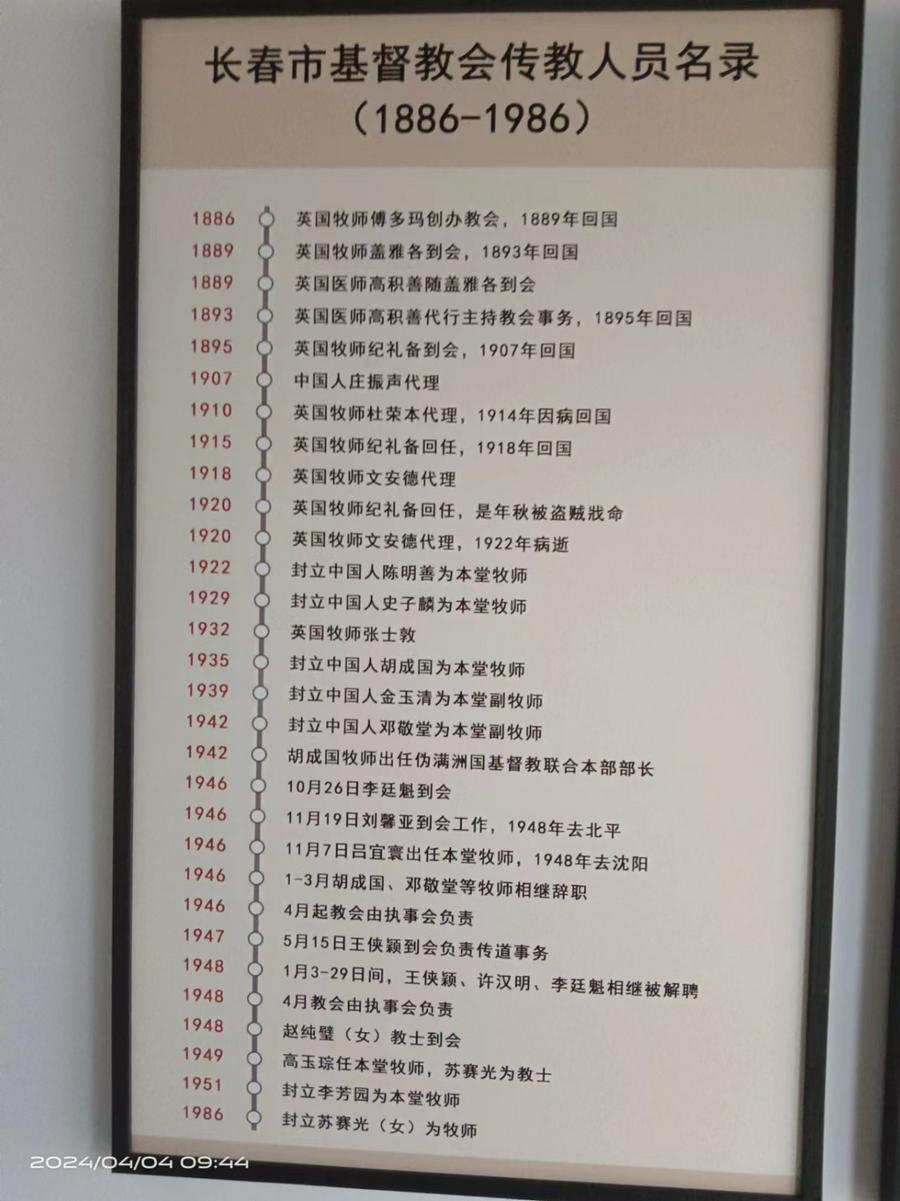 长春市基督教会传教人员名录
（1886-1986）
1886 英国牧师傅多玛创办教会，1889年回国
1889 英国牧师盖雅各到会，1893年回国
1889 英国医师高积善随盖雅各到会
1893 英国医师高积善代行主持教会事务，1895年回国
1895 英国牧师纪礼备到会，1907年回国
1907 中国人庄振声代理
1910 英国牧师杜荣本代理，1914年因病回国
1915 英国牧师纪礼备回任，1918年回国
1918 英国牧师文安德代理
1920 英国牧师纪礼备回任，是年秋被盗贼戕命
1920 英国牧师文安德代理，1922年病逝
1922 封立中国人陈明善为本堂牧师
1929 封立中国人史子麟为本堂牧师
1932 英国牧师张士敦
1935 封立中国人胡成国为本堂牧师
1939 封立中国人金玉清为本堂副牧师
1942 封立中国人邓敬堂为本堂副牧师
1942 胡成国牧师出任伪满洲国基督教联合本部部长
1946 10月26日李廷魁到会
1946 11月19日刘馨亚到会工作，1948年去北平
1946 11月7日吕宜寰出任本堂牧师，1948年去沈阳
1946 1-3月胡成国、邓敬堂等牧师相继辞职
1946 4月起教会由执事会负责
1947 5月15日王侠颖到会负责传道事务
1948 1月3-29日间，王侠颖、许汉明、李廷魁相继被解聘
1948 4月教会由执事会负责
1948 赵纯璧（女）教士到会
1949 高玉琮任本堂牧师，苏赛光为教士
1951 封立李芳园为本堂牧师
1986 封立苏赛光（女）为牧师
2024/04/04 09:44